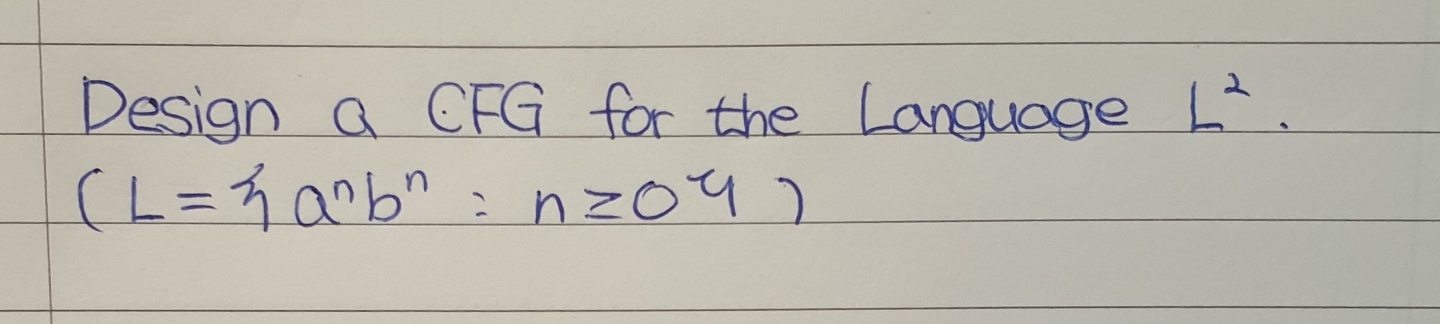 Design a CFG for the Language L².
(L = {aⁿbⁿ : n ≥ 0})